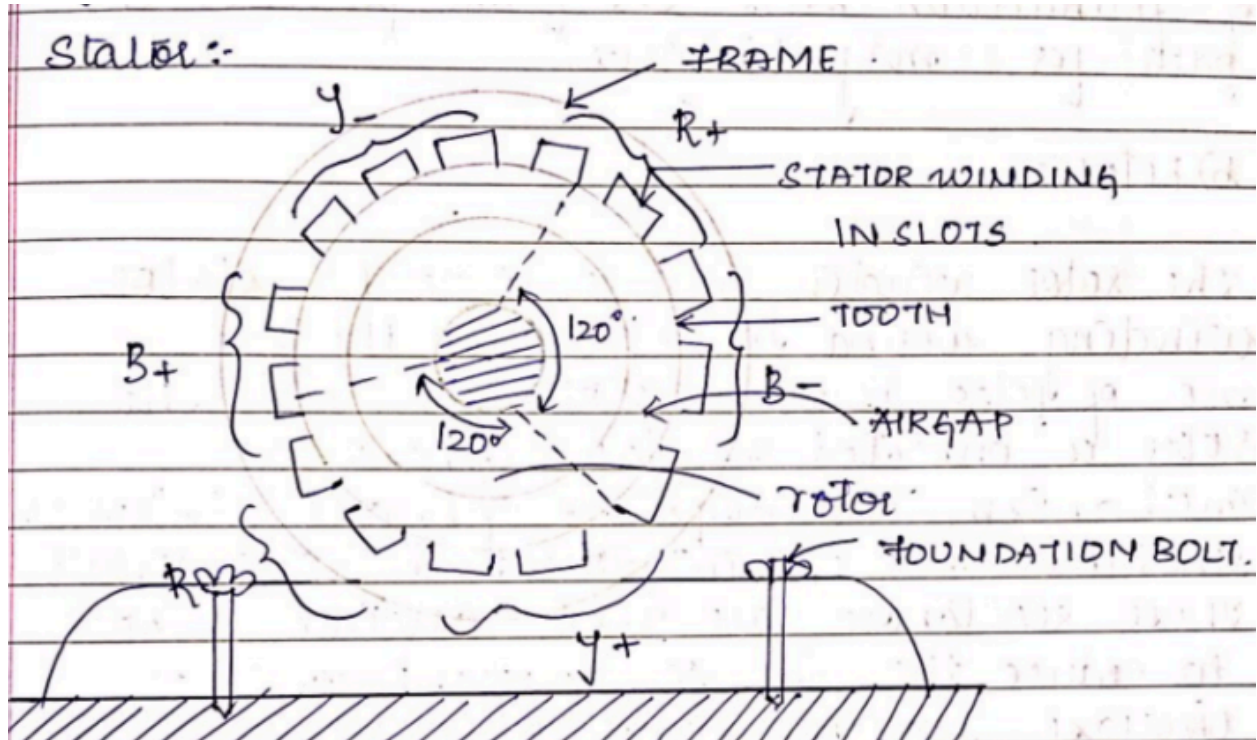 Stator:-
FRAME
Y-
R+
STATOR WINDING
IN SLOTS
TOOTH
120°
B+
B-
AIRGAP
120°
rotor
FOUNDATION BOLT.
R
Y+